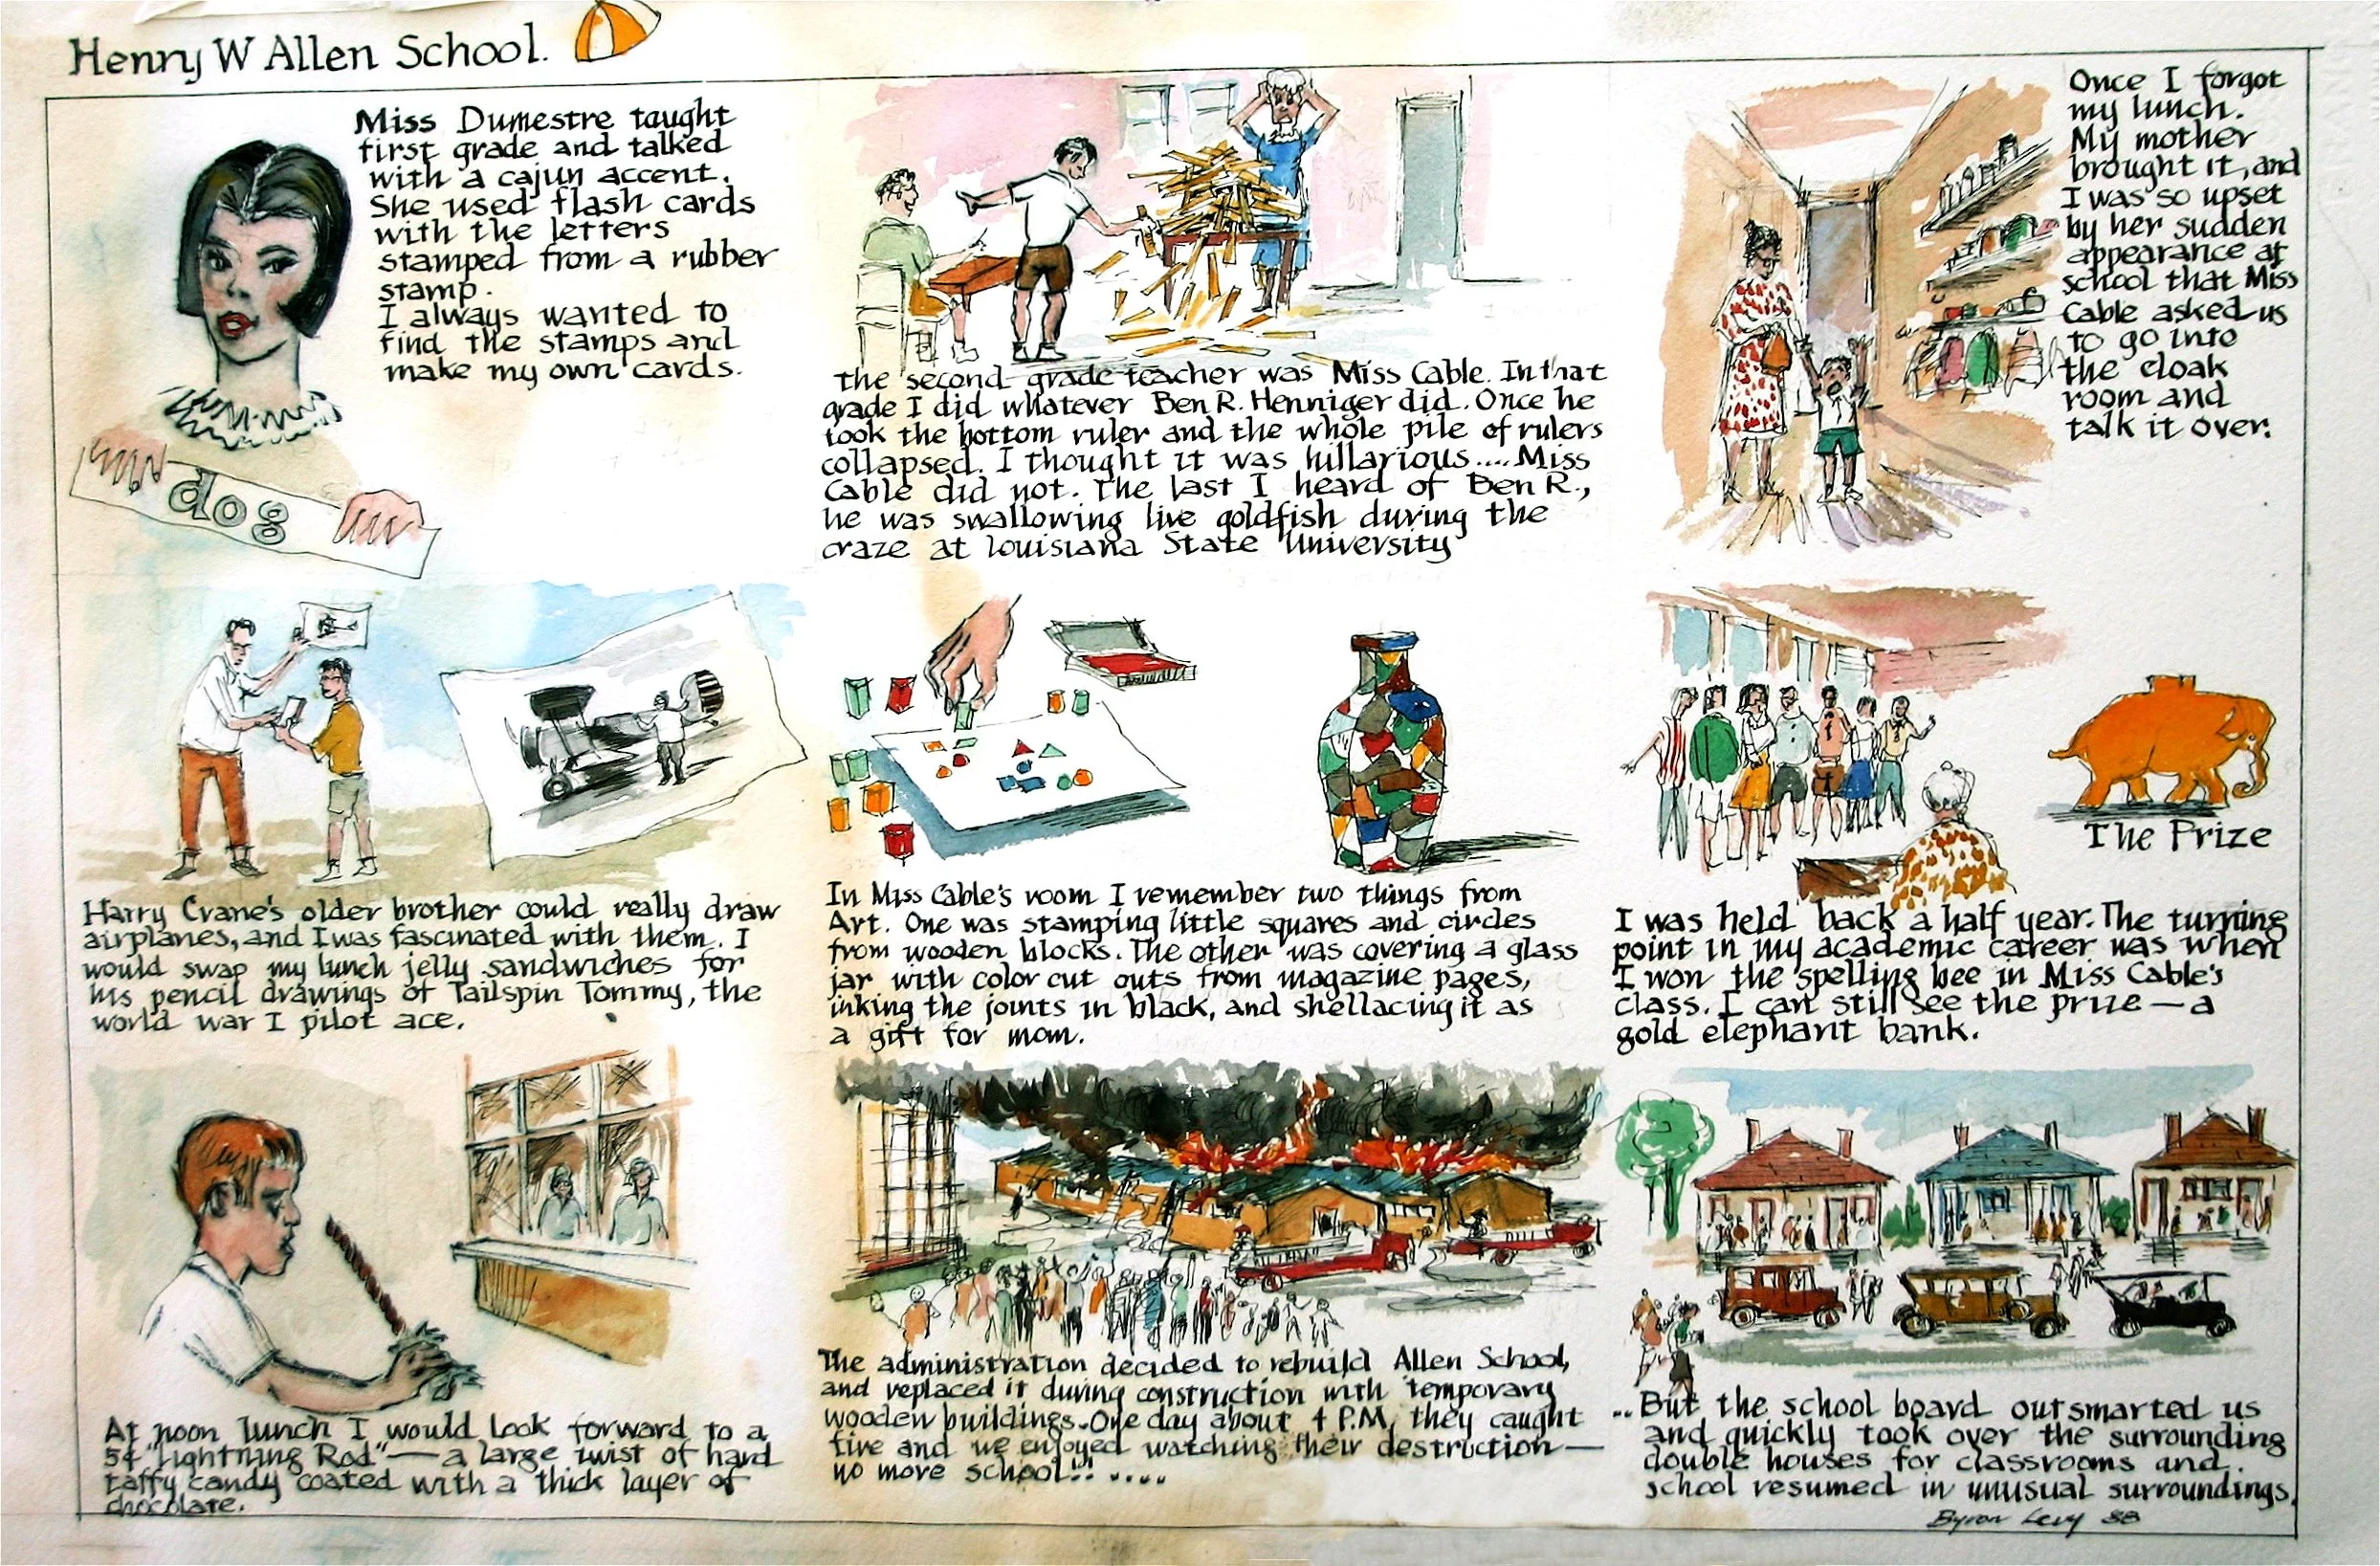 Henry W Allen School.
Miss Dumestre taught
first grade and talked
with a cajun accent.
She used flash cards
with the letters
stamped from a rubber
stamp.
I always wanted to
find the stamps and
make my own cards.
dog
the second grade teacher was Miss Cable. In that
grade I did whatever Ben R. Henniger did. Once he
took the bottom ruler and the whole pile of rulers
collapsed. I thought it was hillarious.... Miss
Cable did not. The last I heard of Ben R.,
he was swallowing live goldfish during the
craze at Louisiana State University
Once I forgot
my lunch.
My mother
brought it, and
I was so upset
by her sudden
appearance at
school that Miss
Cable asked us
to go into
the cloak
room and
talk it over.
Harry Crane's older brother could really draw
airplanes, and I was fascinated with them. I
would swap my lunch jelly sandwiches for
his pencil drawings of Tailspin Tommy, the
world war I pilot ace.
In Miss Cable's room I remember two things from
Art. One was stamping little squares and circles
from wooden blocks. The other was covering a glass
jar with color cut outs from magazine pages,
inking the joints in black, and shellacing it as
a gift for mom.
The Prize
I was held back a half year. The turning
point in my academic career was when
I won the spelling bee in Miss Cable's
class. I can still see the prize — a
gold elephant bank.
At noon lunch I would look forward to a
5¢ "Lightning Rod" — a large twist of hard
taffy candy coated with a thick layer of
chocolate.
The administration decided to rebuild Allen School,
and replaced it during construction with temporary
wooden buildings. One day about 4 P.M. they caught
fire and we enjoyed watching their destruction —
no more school!! .....
.. But the school board outsmarted us
and quickly took over the surrounding
double houses for classrooms and
school resumed in unusual surroundings.
Byron Levy 88